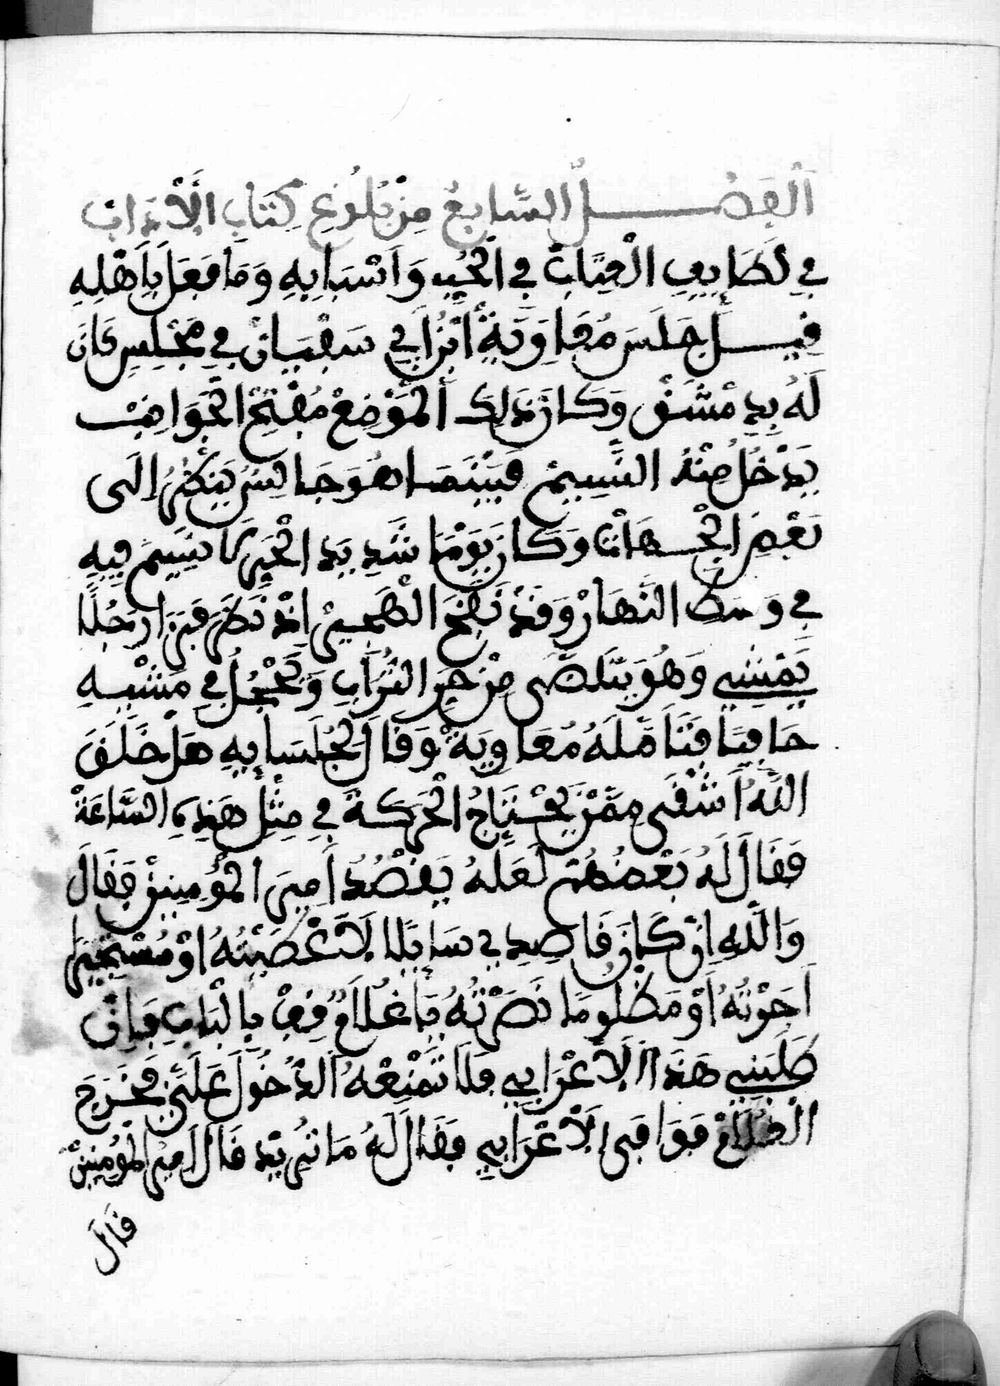 الفصل السابع من بلوغ كتاب الآداب
في لطايف العتاب في الحب واسبابه وما فعل باهله
قيل جلس معاوية ابن ابي سفيان في مجلس كان
له بدمشق وكان ذلك الموضع مفتح الجوانب
يدخل منه النسيم فبينما هو جالس ينظر الى
بعض الجهات وكان يوما شديد الحر لا نسيم فيه
في وسط النهار وقد نفح الهجير اذ نظر فرا رجلا
يمشي وهو يتلضى من حر التراب ويحجل في مشيه
حافيا فتامله معاوية وقال لجلسايه هل خلق
الله اشقى ممن يحتاج الحركة في مثل هذه الساعة
فقال له بعضهم لعله يقصد امير المؤمنين فقال
والله ان كان قاصدي سايلا لاعطينه او مستجيرا
اجرته او مظلوما نصرته يا غلام قف بالباب فان
طلبني هذا الاعرابي فلا تمنعه الدخول علي فخرج
الغلام فوافى الاعرابي فقال له ما تريد قال امير المؤمنين
قال